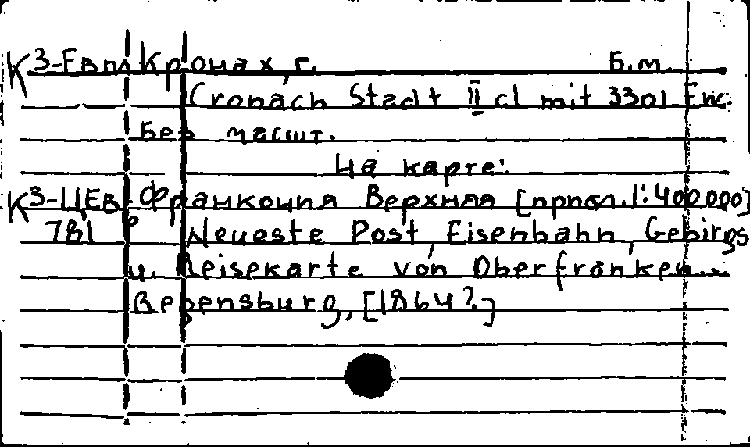 К З-Евп Кронах, г. Б.м.
Cronach Stadt II cl mit 3301 Einc.
Без масшт.
На карте:
К З-ЦЕв Франкония Верхняя [прибл. 1:400000]
781 Neueste Post, Eisenbahn, Gebirgs
u. Reisekarte von Oberfranken...
Regensburg, [1864?]